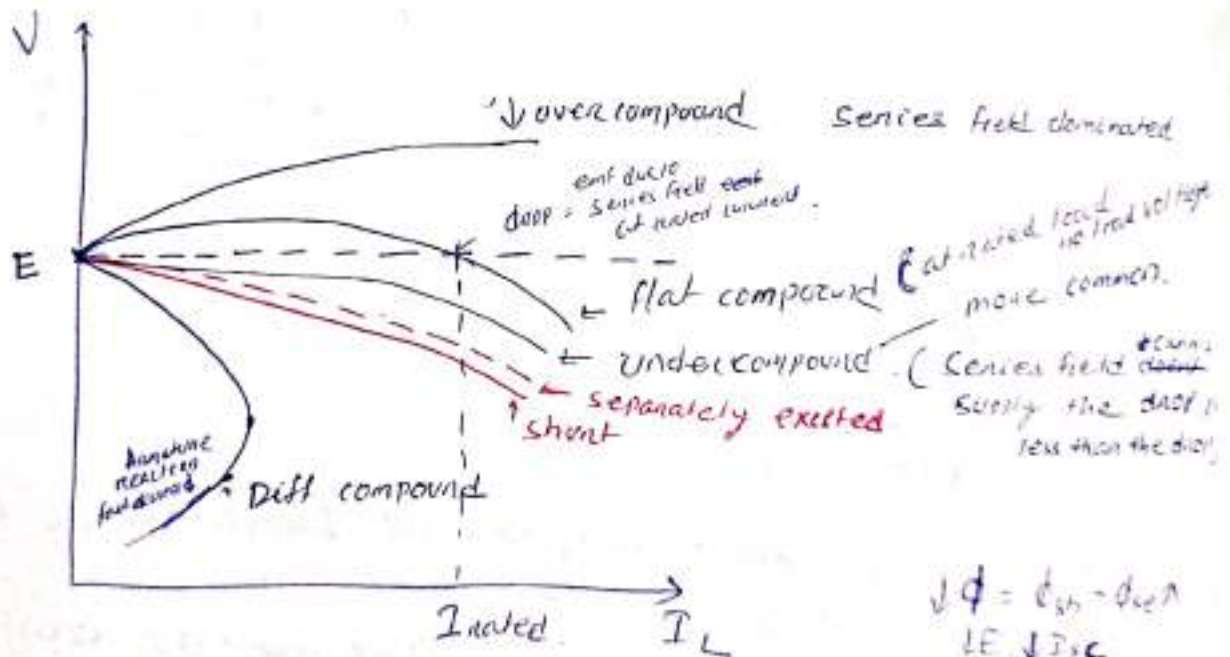 V
↓ over compound series field dominated
emf due to
drop = series field
at rated current.
E
flat compound (at rated load
no load voltage
more common.
under compound. (series field
supply the drop
less than the drop
separately excited
shunt
Armature
reaction
Diff compound
I rated. I_L
↓ϕ = ϕsh - ϕse↑
↓E ↓Isc